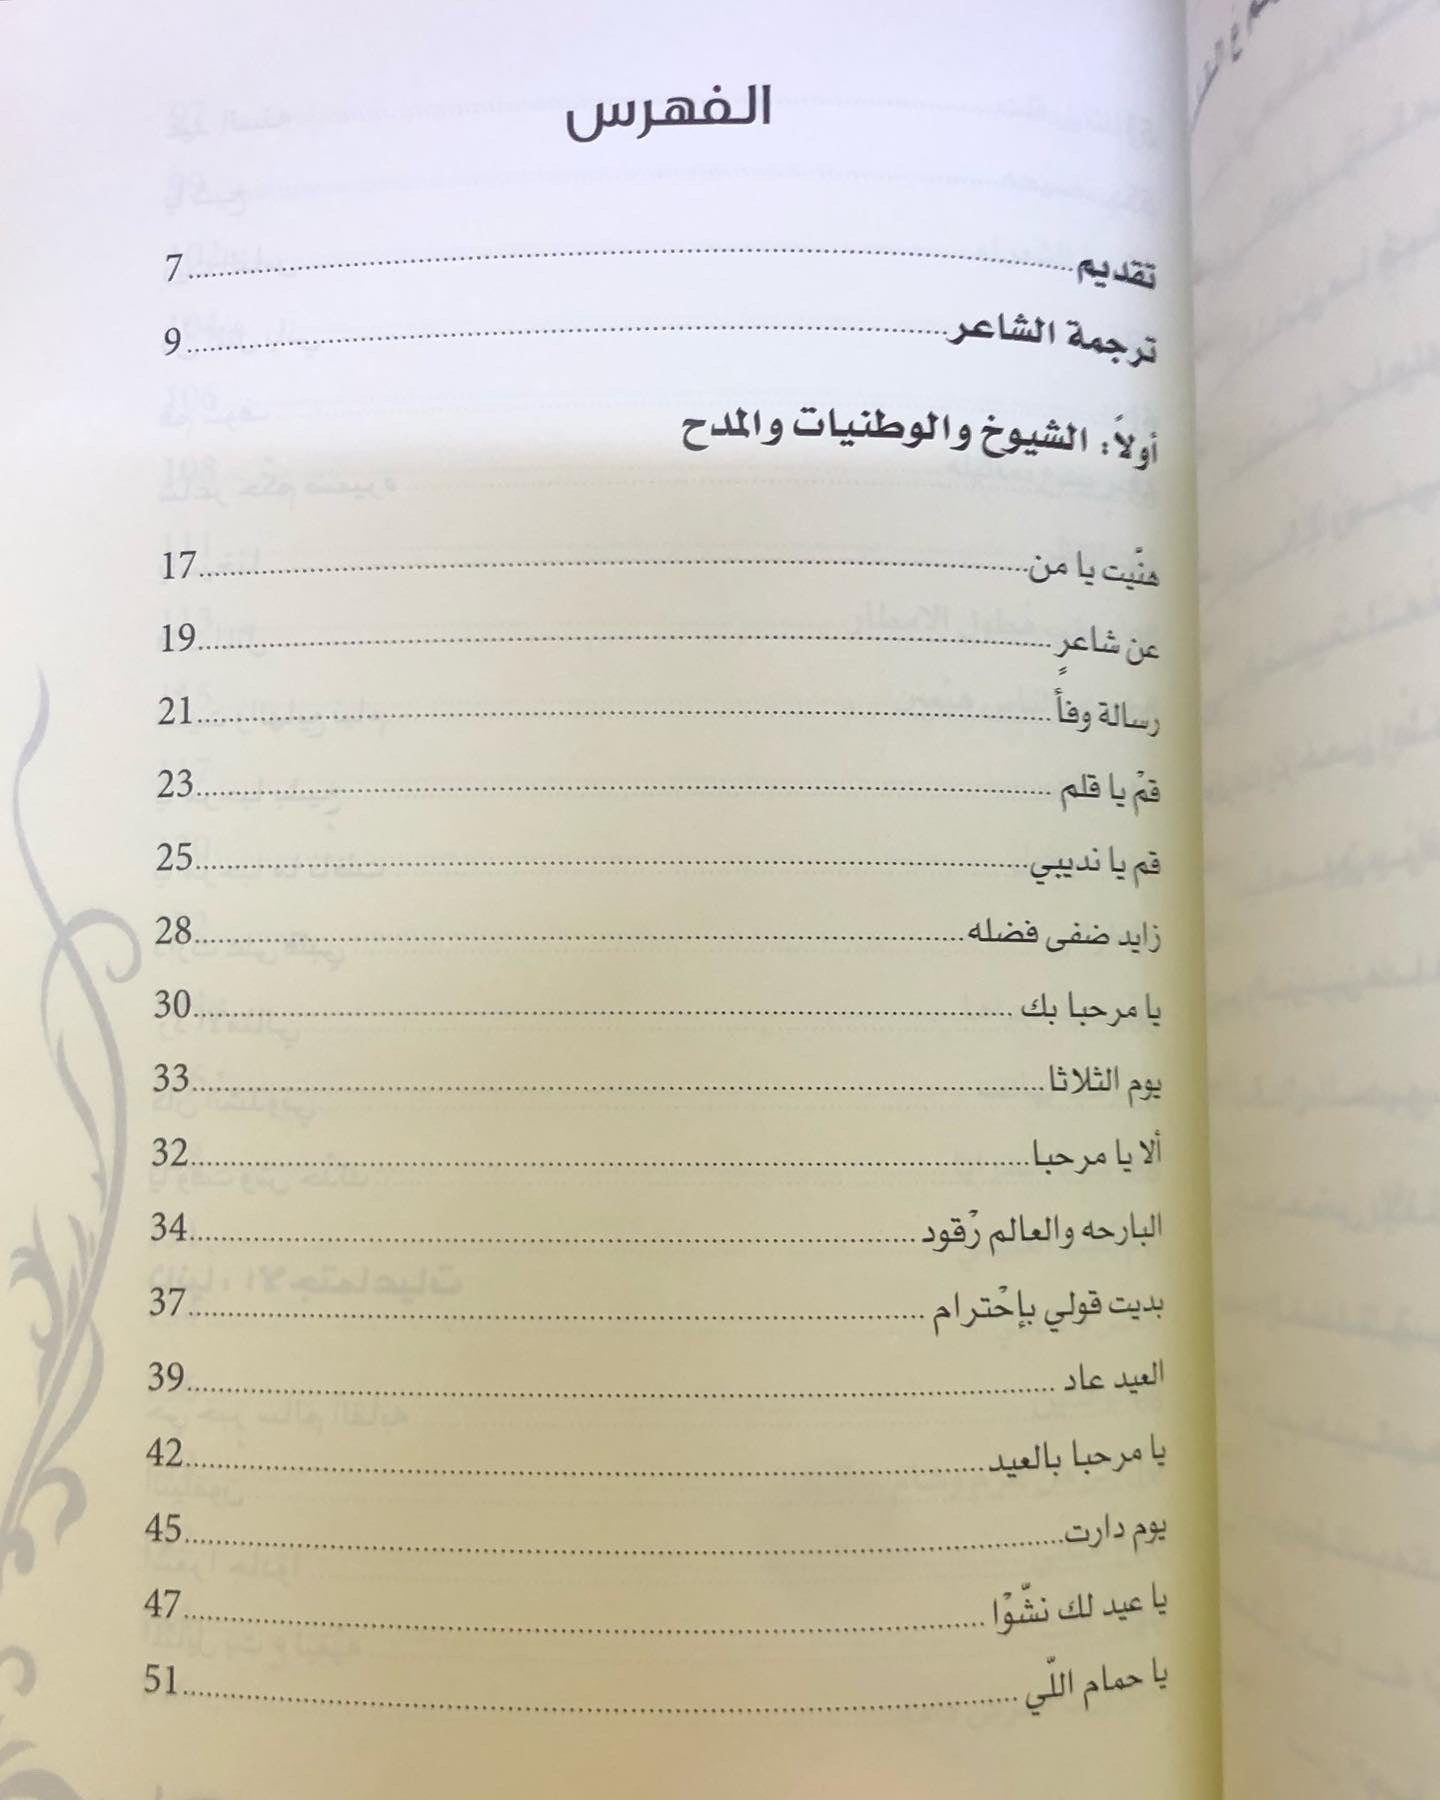 الفهرس
تقديم 7
ترجمة الشاعر 9
أولاً: الشيوخ والوطنيات والمدح
هنّيت يا من 17
عن شاعرٍ 19
رسالة وفأ 21
قمْ يا قلم 23
قم يا نديبي 25
زايد ضفى فضله 28
يا مرحبا بك 30
يوم الثلاثا 33
ألا يا مرحبا 32
البارحه والعالم رْقود 34
بديت قولي بإحْترام 37
العيد عاد 39
يا مرحبا بالعيد 42
يوم دارت 45
يا عيد لك نشّوْا 47
يا حمام اللّي 51